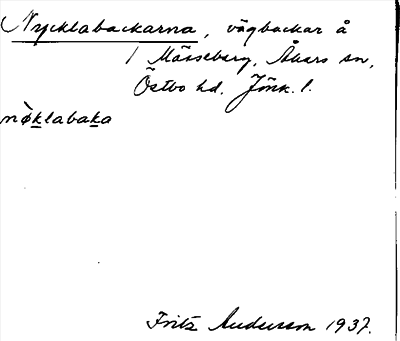 Nycklabackarna, vägbackar å
/ Mässeberg, Åkers sn,
Östbo hd. Jönk. l.
nø̀klabaka
Fritz Andersson 1937.